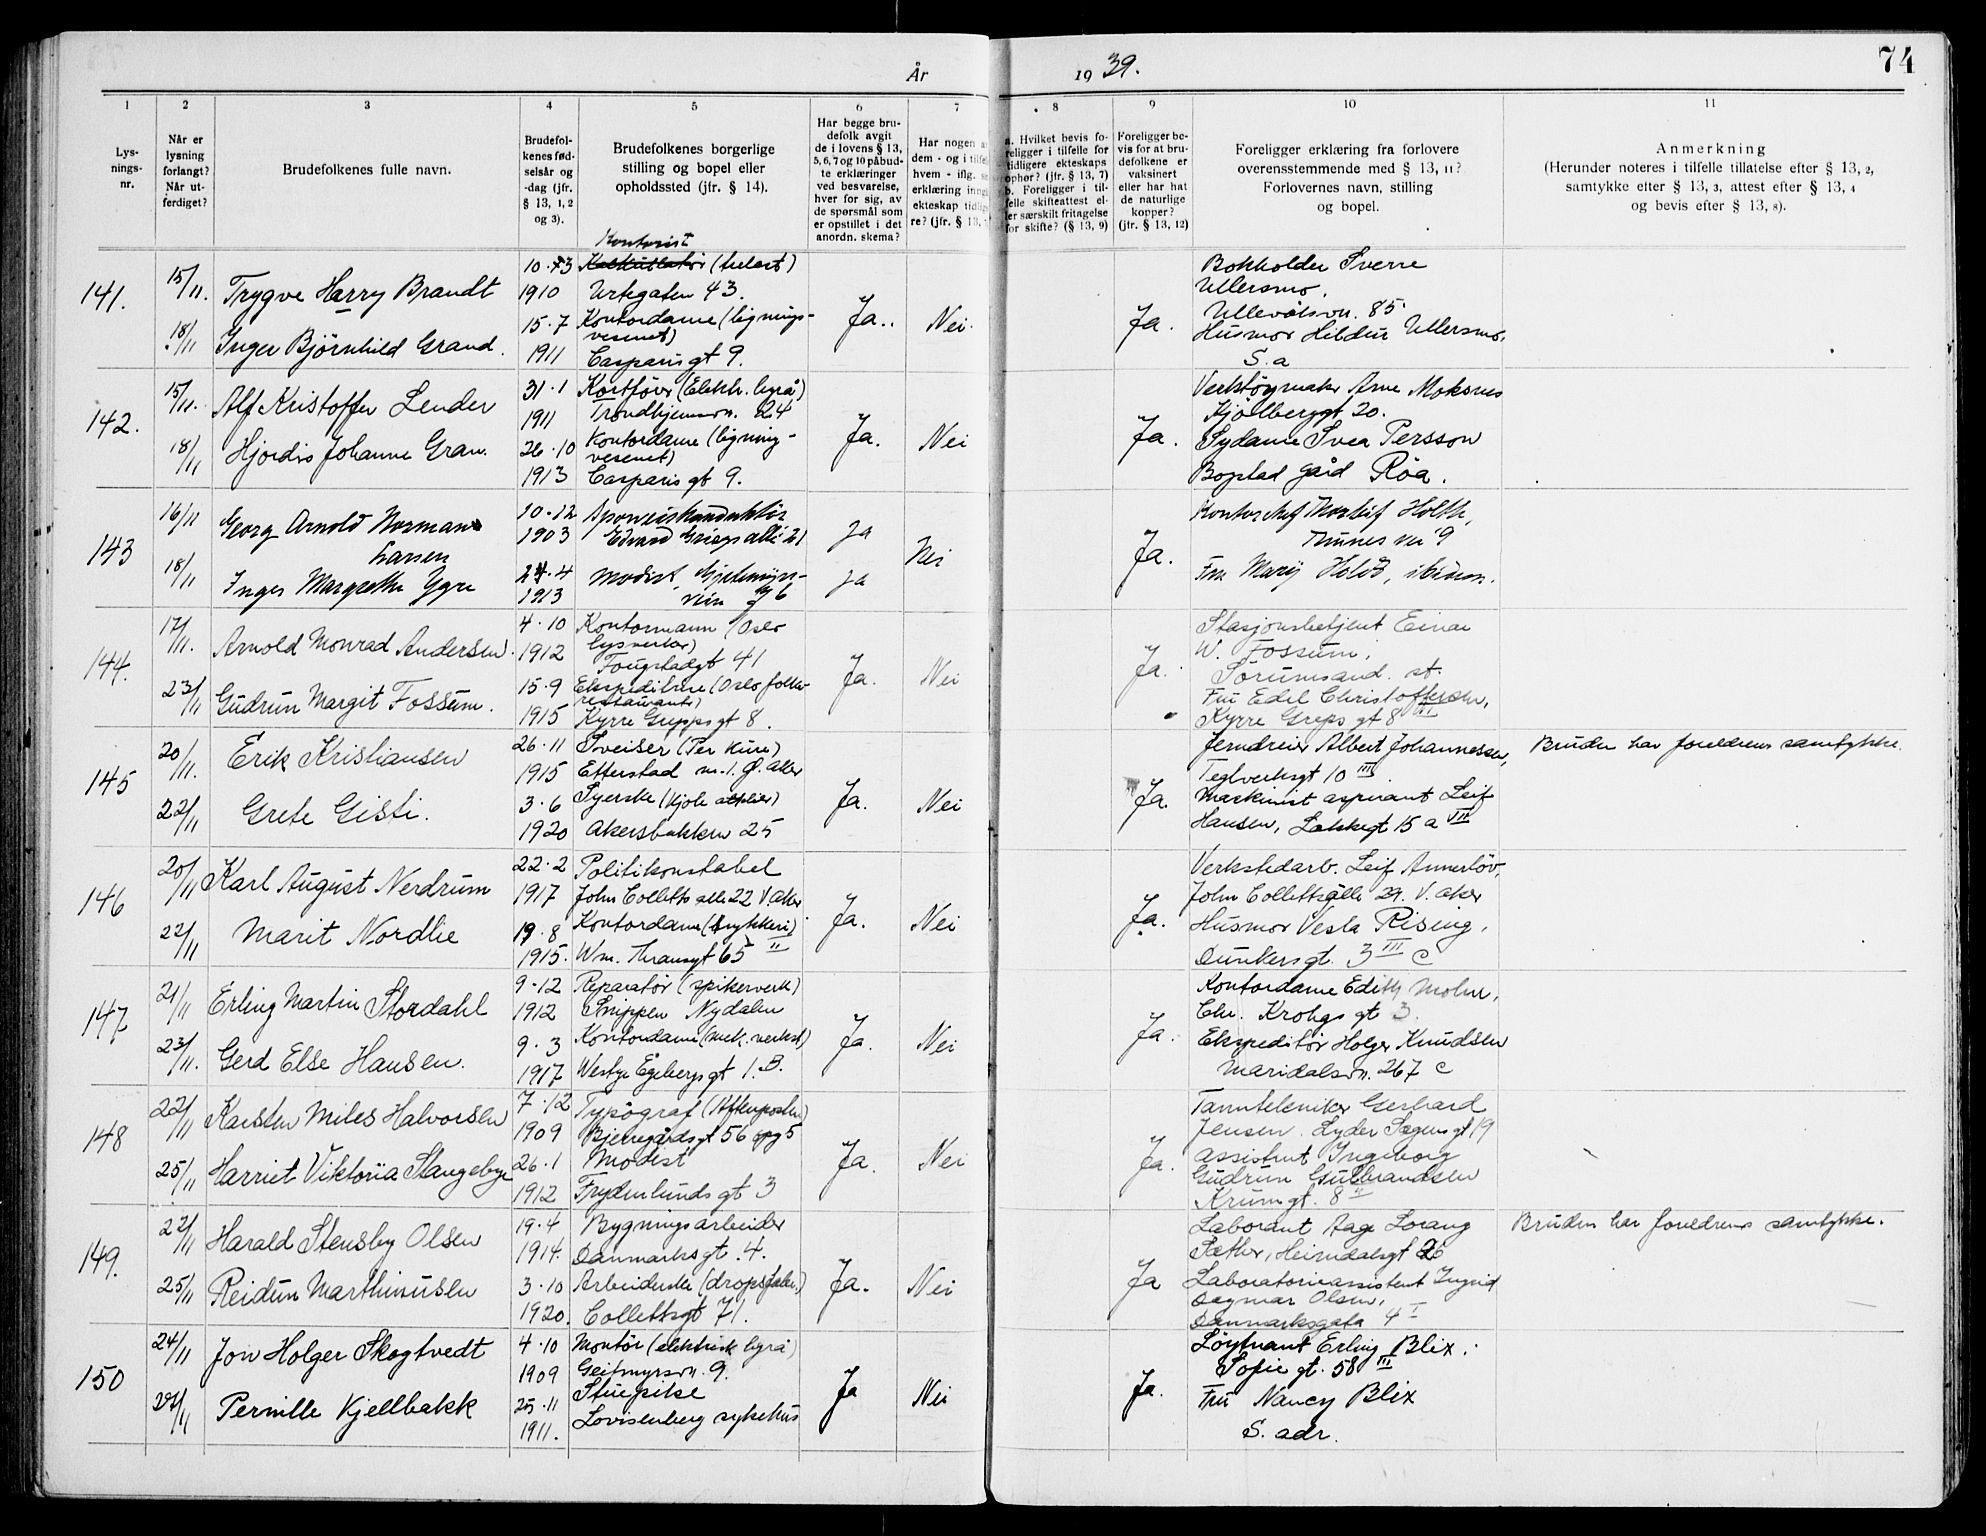 År 1939.
74
1 2 3 4 5 6 7 8 9 10 11
Lys-
nings-
nr.
Når er
lysning
forlangt?
Når ut-
ferdiget?
Brudefolkenes fulle navn.
Brudefol-
kenes fød-
selsår og
-dag (jfr.
§ 13, 1, 2
og 3).
Brudefolkenes borgerlige
stilling og bopel eller
opholdssted (jfr. § 14).
Har begge bru-
defolk avgit
de i lovens § 13,
5, 6, 7 og 10 påbud-
te erklæringer
ved besvarelse,
hver for sig, av
de spørsmål som
er opstillet i det
anordn. skema?
Har nogen a
dem - og i tilfel
hvem - iflg. s
erklæring inng
ekteskap tidlig
re? (jfr. § 13,
a. Hvilket bevis fo-
religger i tilfelle for
tidligere ekteskaps
ophør? (§ 13, 7)
b. Foreligger i til-
felle skifteattest el-
ler særskilt fritagelse
for skifte? (§ 13, 9)
Foreligger be-
vis for at bru-
defolkene er
vaksinert
eller har hat
de naturlige
kopper?
(jfr. § 13, 12)
Foreligger erklæring fra forlovere
overensstemmende med § 13, 11?
Forlovernes navn, stilling
og bopel.
Anmerkning
(Herunder noteres i tilfelle tillatelse efter § 13, 2,
samtykke efter § 13, 3, attest efter § 13, 4
og bevis efter § 13, 8).
141.
15/11.
18/11
Trygve Harry Brandt
Inger Bjørnhild Grand.
10.
1910
15.7
1911
Kontorist
Urtegaten 43.
Kontordame (lignings-
vesenet)
Casparis gt 9.
Ja.
Nei.
Ja.
Bokholder Sverre
Ullersmo,
Ullevålsvn. 85
Husmor Hildur Ullersmo,
S. a
142.
15/11.
18/11
Alf Kristoffer Lender
Hjordis Johanne Gran.
31.1
1911
26.10
1913
(Elektr. byrå)
Trondhjemsvn. 24
Kontordame (ligning-
vesenet)
Casparis gt 9.
Ja.
Nei
Ja.
Verktøymaker Arne Moksnes
Kjølberggt 20.
Sydame Svea Persson
Bogstad gård Røa.
143
16/11
18/11
Georg Arnold Norman
Larsen
Inger Margrethe Ygre
10.12
1903
4
1913
Sporveiskonduktør
Edvard Griegs allé 21
Modist, Gjetemyrs-
veien
Ja
Ja
Nei
Ja.
Kontorchef Thorleif Holth,
Thunes vei 9
Fru Mary Holth, ibidem.
144.
17/11.
23/11
Arnold Monrad Andersen.
Gudrun Margit Fossum.
4.10
1912
15.9
1915
Kontormann (Oslo
lysverker)
Fougstadgt 41
Ekspeditrise (Oslo folke-
restauranter)
Kyrre Greppsgt 8.
Ja.
Nei
Ja.
Stasjonsbetjent Einar
W. Fossum,
Sørumsand. st.
Fru Edel Christoffersen,
Kyrre Greps gt 8 III
145
20/11.
22/11
Erik Kristiansen
Grete Gisti.
26.11
1915
3.6
1920
Sveiser (Per Kure)
Etterstad m. 1. Ø. Aker
Syerske (Kjole atelier)
Akersbakken 25
Ja.
Nei
Ja.
Jerndreier Albert Johannessen,
Teglverksgt 10 III
Maskinist aspirant Leif
Hansen, Lakkegt 15 a VII
Bruden har foreldrenes samtykke.
146
20/11
22/11
Karl August Nerdrum
Marit Nordlie
22.2
1917
19.8
1915.
Politikonstabel
John Colletts alle 22 V. Aker
Kontordame (trykkeri)
Wm. Thranesgt 65 II
Ja.
Nei
Ja.
Verkstedarb. Leif Annerløv,
John Colletts alle 24. V. Aker
Husmor Vesla Rising,
Dunkersgt. 3 III C
147
21/11
23/11.
Erling Martin Stordahl
Gerd Else Hansen.
9.12
1912
9.3
1917
Reparatør (spikerverk)
Snippen Nydalen
Kontordame (mek. verkst)
Westye Egebergs gt 1. B.
Ja.
Nei
Ja.
Kontordame Edith Mohn,
Chr. Krohgs gt 3.
Ekspeditør Holger Knudsen
Maridalsvn. 267 c
148
22/11
25/11
Karsten Miles Halvorsen
Harriet Viktoria Stangebye
7.12
1909
26.1
1912
Typograf (Aftenposten)
Bjerregårdsgt 56 opg 5
Modist
Frydenlunds gt 3
Ja.
Nei
Ja.
Tanntekniker Gerhard
Jensen. Lyder Sagens gt 19
Assistent Ingeborg
Gudrun Gulbrandsen
Krumgt. 8 II
149.
22/11
25/11
Harald Stensby Olsen
Reidun Marthinusen
19.4
1914.
3.10
1920.
Bygningsarbeider
Danmarksgt. 4.
Arbeiderske (dropsfabr.)
Collettsgt 71.
Ja.
Nei
Ja
Laborant Aage Lorang
Sæther, Heimdalsgt 26
Laboratorieassistent Ingrid
Dagmar Olsen,
Danmarksgata 4 I
Bruden har foreldrenes samtykke.
150
24/11
27/11
Jon Holger Skogtvedt
Pernille Kjellbakk
4.10
1909
25.11
1911.
Montør (elektrisk byrå)
Geitmyrsvn. 9.
Stuepike
Lovisenberg sykehus
Ja
Nei
Ja.
Løytnant Erling Blix.
Sofie gt. 58 III
Fru Nancy Blix
S. adr.